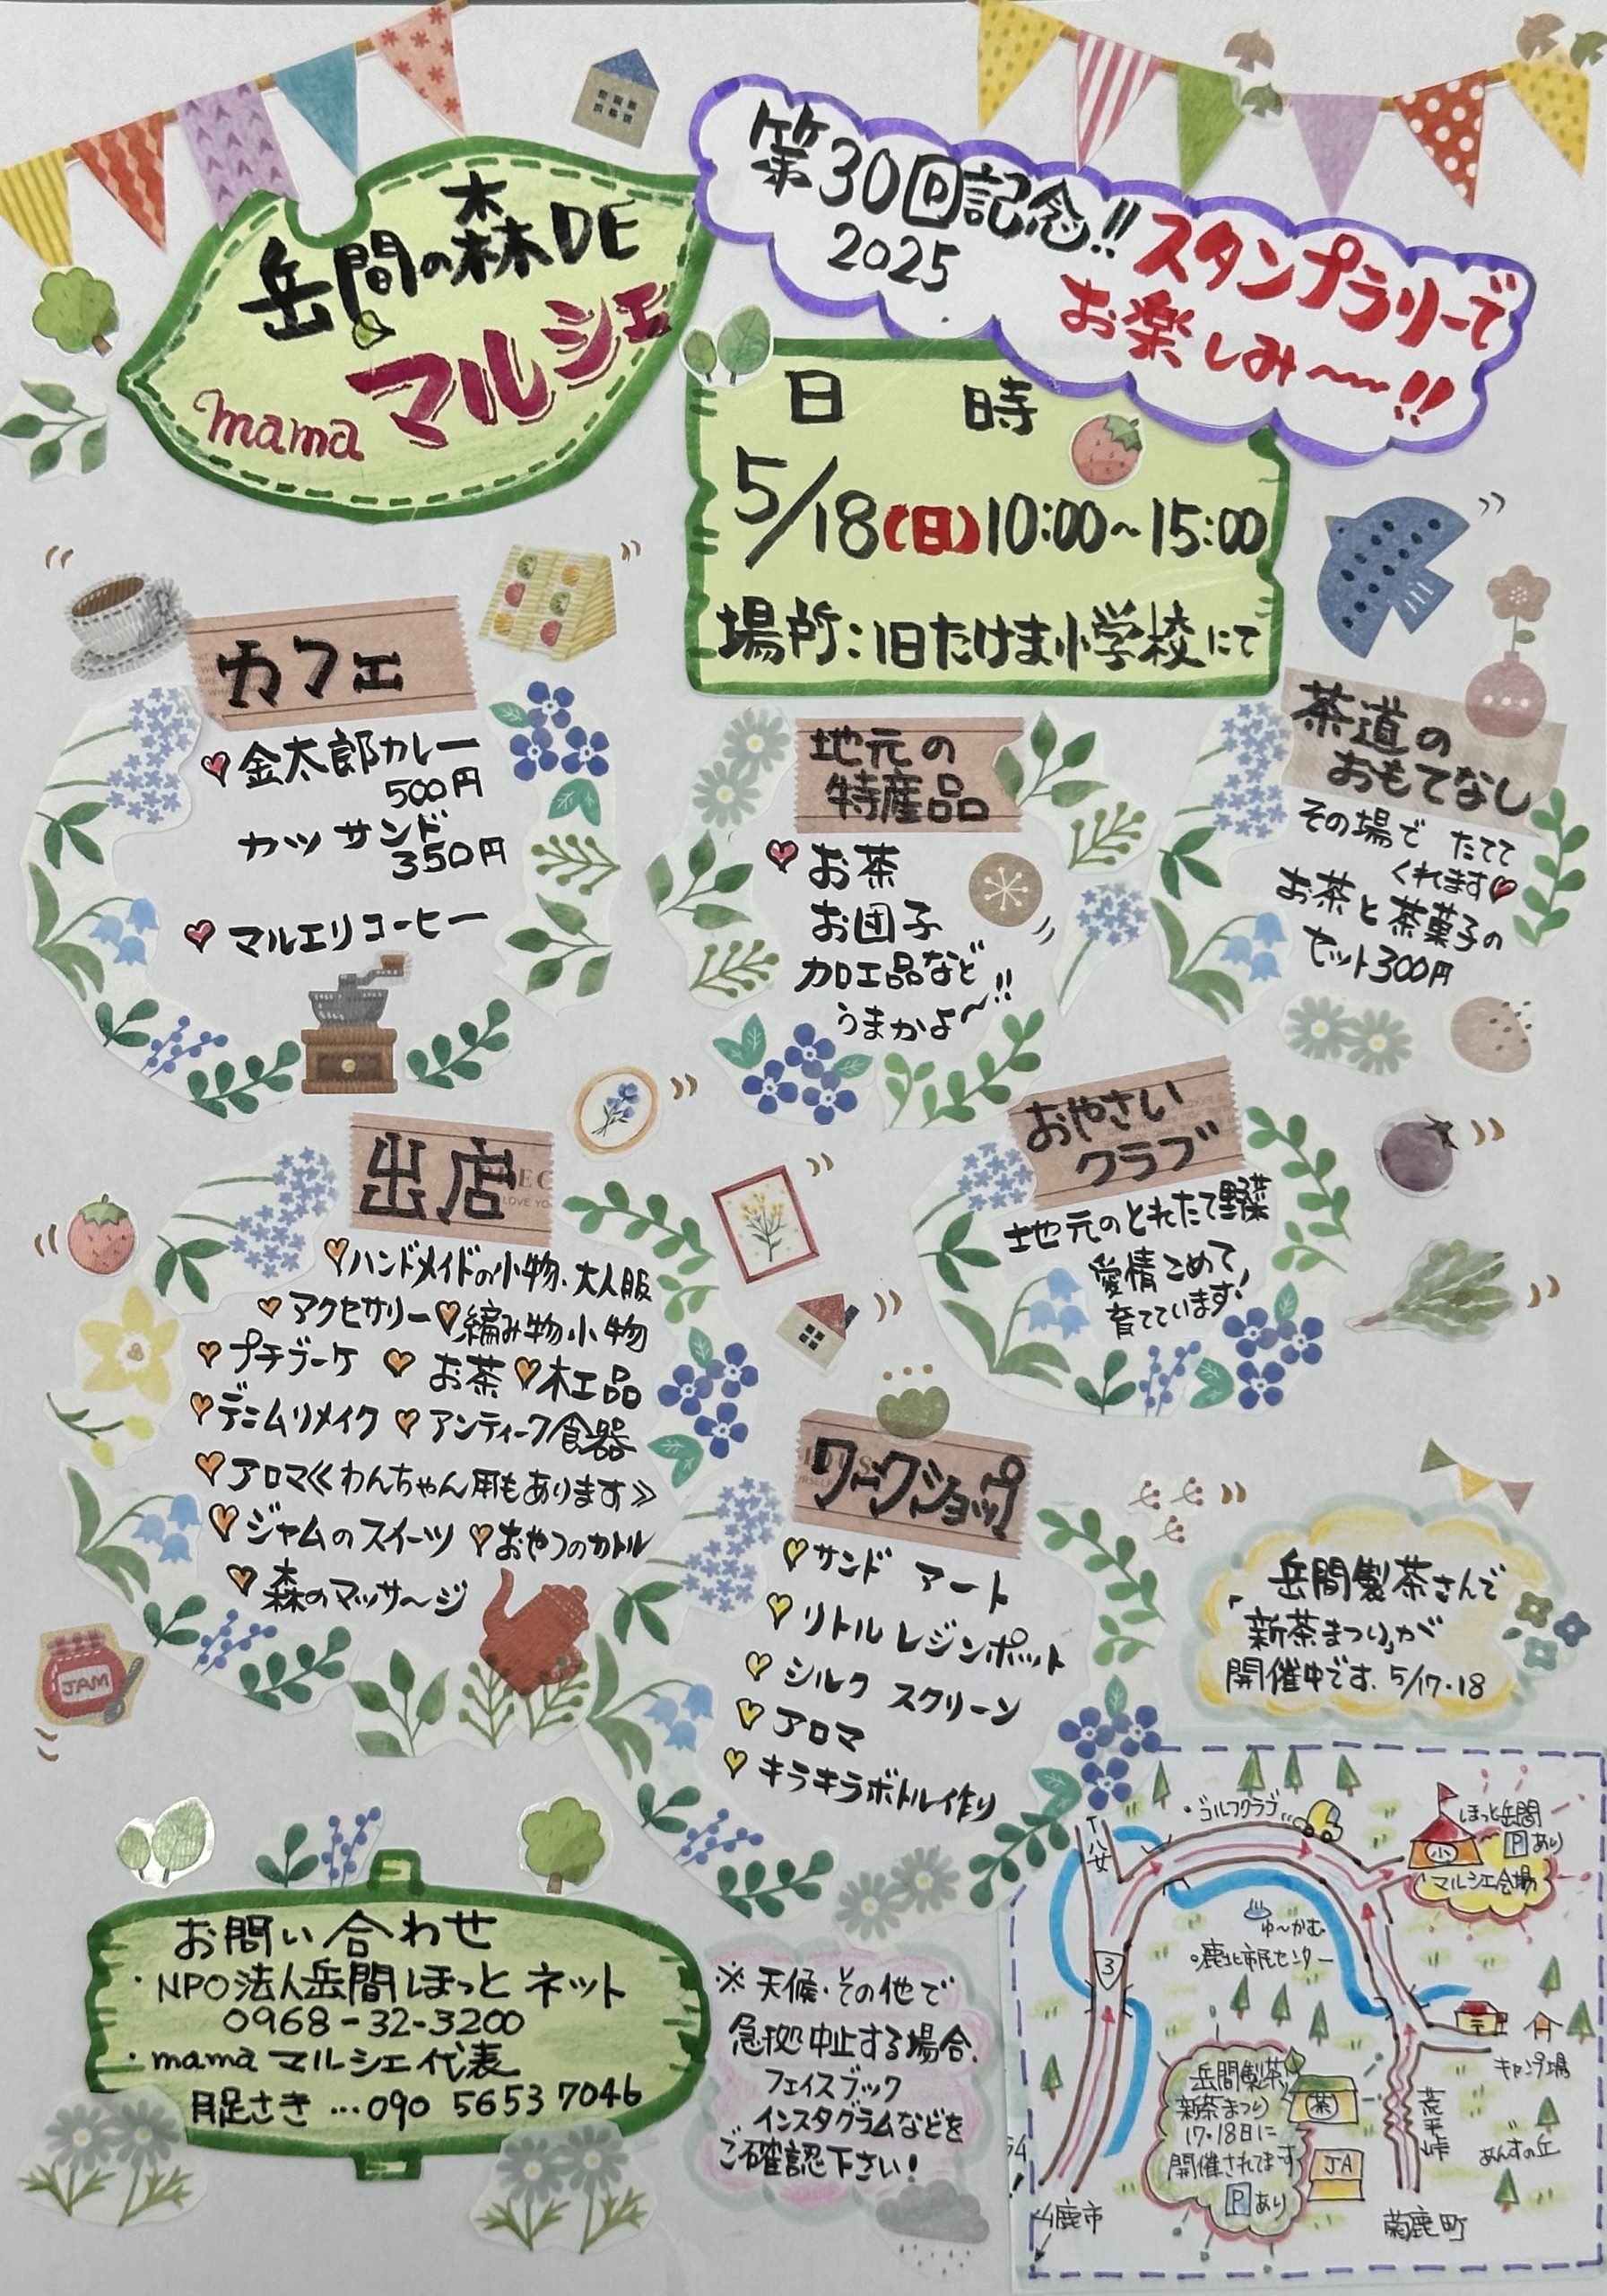 岳間の森DE
mama マルシェ
第30回記念!!スタンプラリーで
2025 お楽しみ〜〜!!
日 時
5/18(日)10:00~15:00
場所:旧たけま小学校にて
カフェ
金太郎カレー
500円
カツ サンド
350円
マルエリコーヒー
地元の
特産品
お茶
お団子
加工品など
うまかよ〜!!
茶道の
おもてなし
その場で たてて
くれます
お茶と茶菓子の
セット300円
出店
ハンドメイドの小物・大人服
アクセサリー 編み物小物
プチブーケ お茶 木工品
デニムリメイク アンティーク食器
アロマ≪わんちゃん用もあります≫
ジャムのスイーツ おやつのカトル
森のマッサ〜ジ
JAM
おやさい
クラブ
地元のとれたて野菜
愛情こめて
育てています!
ワークショップ
サンド アート
リトル レジンポット
シルク スクリーン
アロマ
キラキラボトル作り
岳間製茶さんで
「新茶まつり」が
開催中です. 5/17・18
お問い合わせ
・NPO法人岳間ほっと ネット
0968-32-3200
・mama マルシェ代表
月足さき…090 5653 7046
※天候・その他で
急拠中止する場合、
フェイスブック
インスタグラムなどを
ご確認下さい!
八女
・ゴルフクラブ
ほっと岳間
Pあり
小
マルシェ会場
ゆ〜かむ
鹿北市民センター
3
キャンプ場
岳間製茶
新茶まつり
17・18日に
開催されてま〜す
Pあり
茶
JA
荒平峠
あんずの丘
山鹿市
菊鹿町